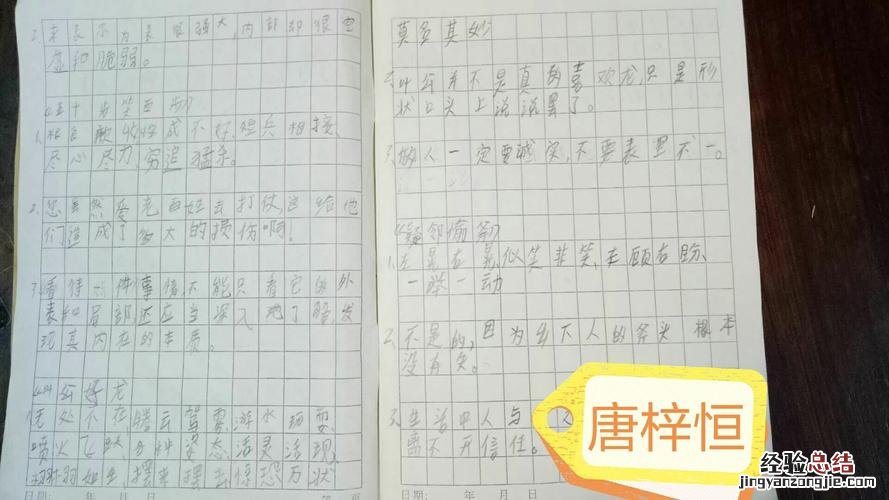 2、来表示为表 很强大，内部却很空
虚和脆弱。
《五十步笑百步》
1、相互 收性成不好，短兵相接、
尽心尽力、穷追猛杀。
2、您虽然爱 百姓去打仗，这给他
们造成了多大的损伤啊！
3、看待一件事情，不能只看它的外
表和局部，还应当深入地了解，发
现其内在的本质。
叶公好龙
无处不在、腾云驾雾、游水玩耍、
喷火飞跃、多种姿态、活灵活现、
栩栩如生、摆来摆去、惊恐万状
日期： 年 月 日
莫名其妙
2、叶公并不是真的喜欢龙，只是形
状口头上说说罢了。
3、做人一定要诚实，不要表里不一。
《疑邻偷斧》
1、左晃右晃、似笑非笑、左顾右盼、
一举一动
2、不是的，因为乡下人的斧头 根本
没有失。
3、生活中人与人
离不开信任。
唐梓恒
日期： 年 月 日
经验总结
jingyanzongjie.com